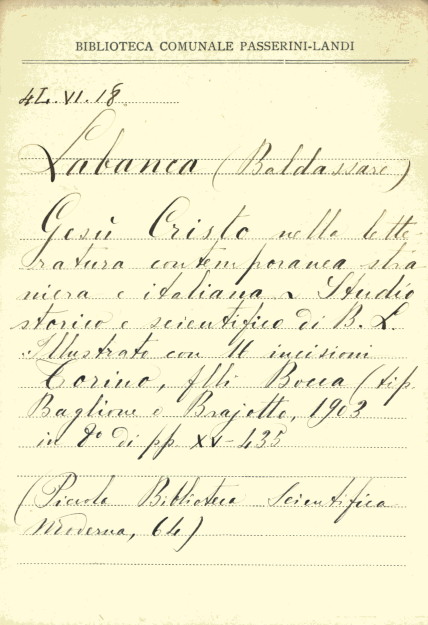 BIBLIOTECA COMUNALE PASSERINI-LANDI
4L.VI.18.
Labanca (Baldassare)
Gesù Cristo nella lette-
ratura contemporanea stra-
niera e italiana ~ Studio
storico e scientifico di B. L.
Illustrato con 11 incisioni
Torino, flli Bocca (tip.
Baglione e Brajotto, 1903
in 8º di pp XV-435
(Piccola Biblioteca Scientifica
Moderna, 64)